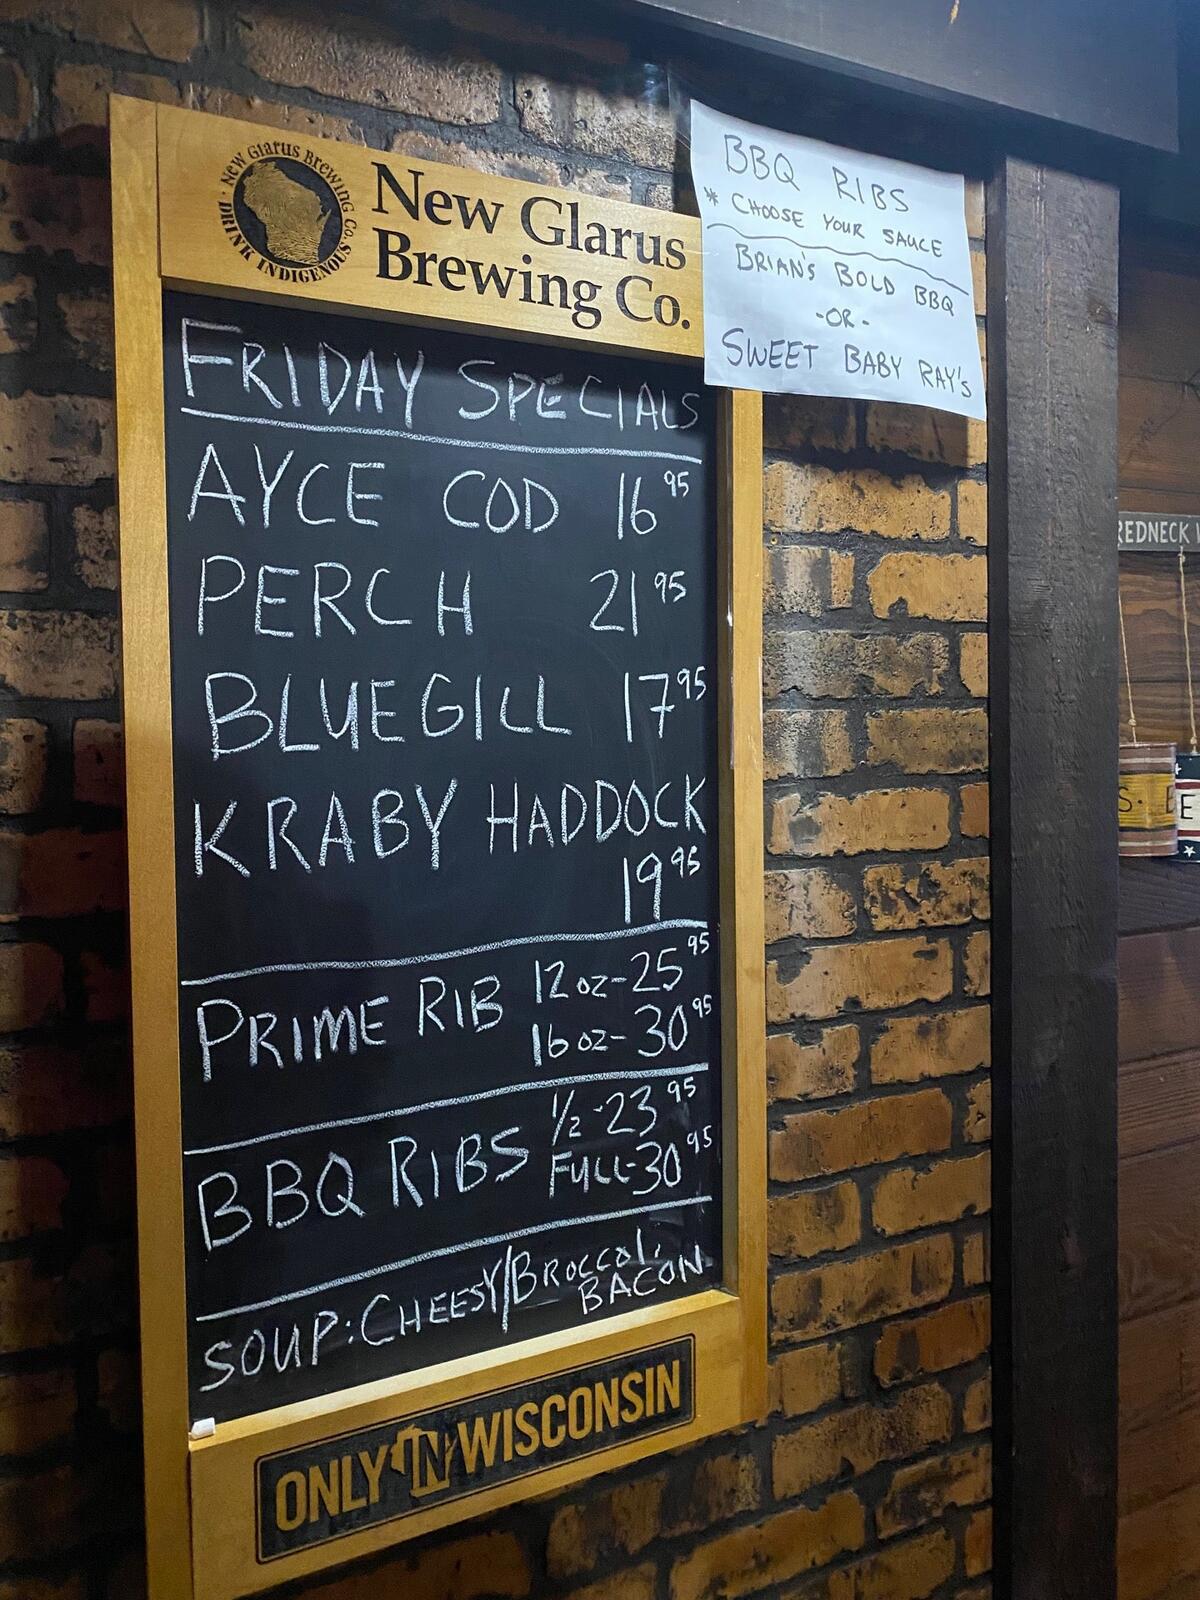 New Glarus Brewing Co.
DRINK INDIGENOUS
New Glarus
Brewing Co.
BBQ RIBS
* CHOOSE YOUR SAUCE
BRIAN'S BOLD BBQ
-OR-
SWEET BABY RAY'S
FRIDAY SPECIALS
AYCE COD 16 95
PERCH 21 95
BLUEGILL 17 95
KRABY HADDOCK
19 95
PRIME RIB 12 oz - 25 95
16 oz - 30 95
BBQ RIBS 1/2 - 23 95
FULL - 30 95
SOUP: CHEESY/BROCCOLI
BACON
ONLY IN WISCONSIN
REDNECK